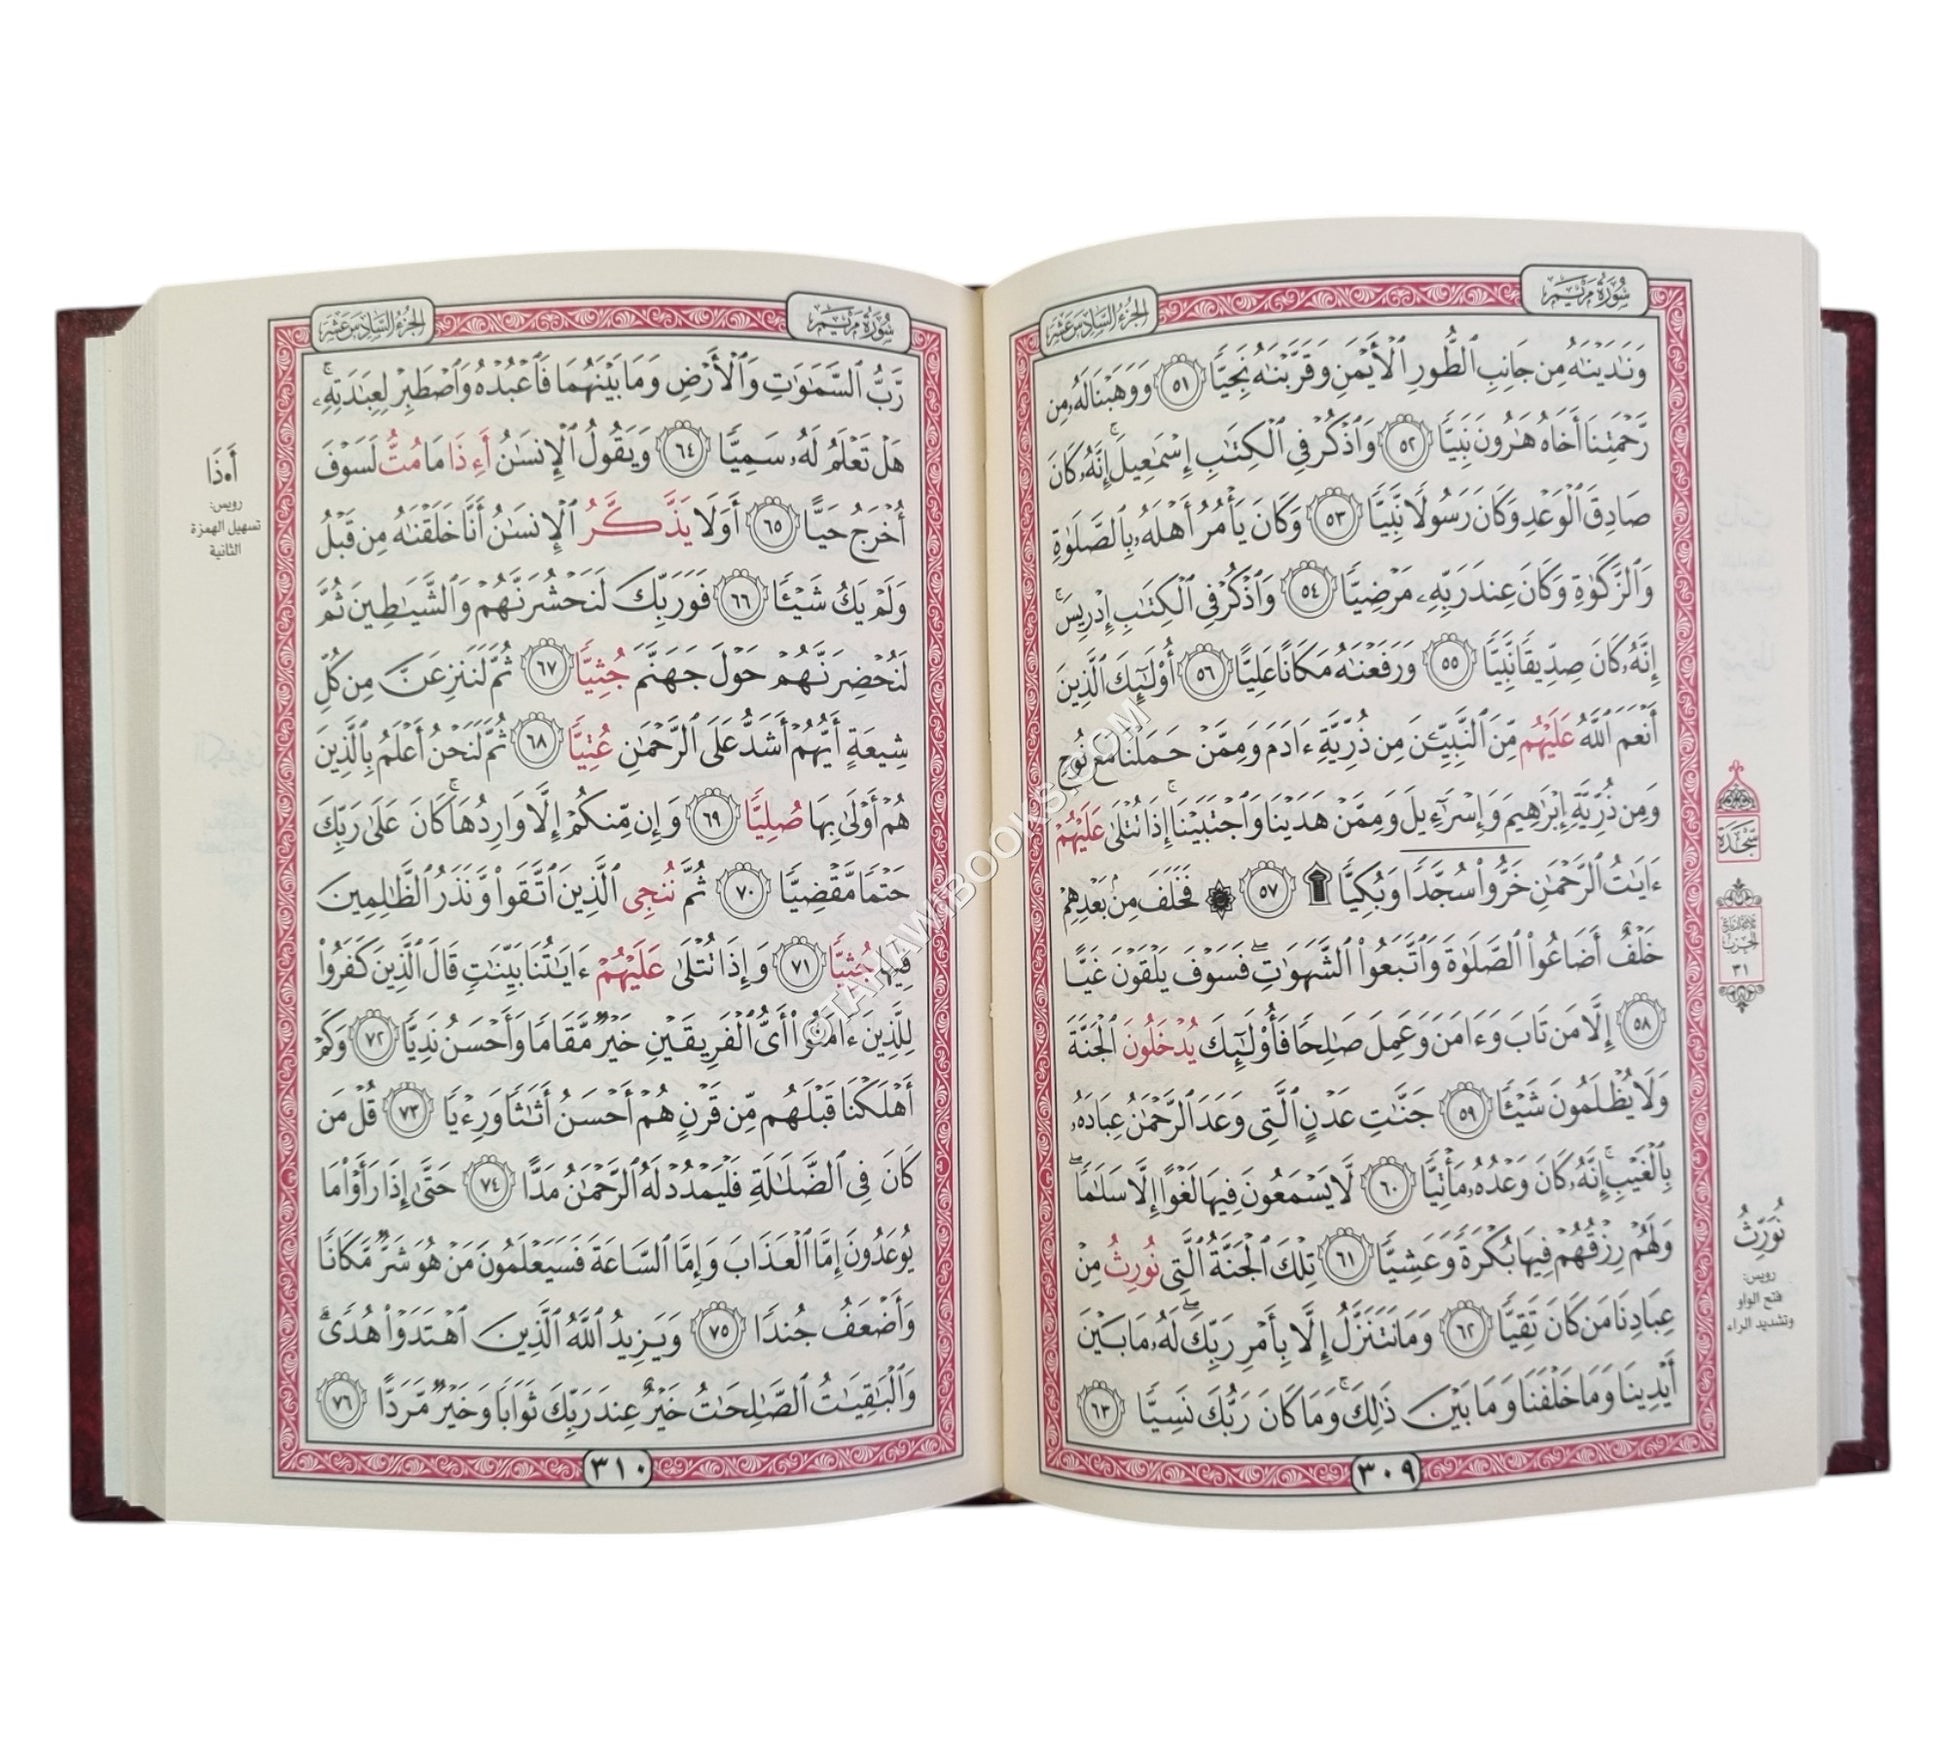 سُورَةُ مَرْيَمَ
الجُزْءُ السَّادِسَ عَشَرَ
وَنَٰدَيْنَٰهُ مِن جَانِبِ ٱلطُّورِ ٱلْأَيْمَنِ وَقَرَّبْنَٰهُ نَجِيًّا ٥١ وَوَهَبْنَا لَهُۥ مِن
رَّحْمَتِنَا أَخَاهُ هَٰرُونَ نَبِيًّا ٥٢ وَٱذْكُرْ فِي ٱلْكِتَٰبِ إِسْمَٰعِيلَۚ إِنَّهُۥ كَانَ
صَادِقَ ٱلْوَعْدِ وَكَانَ رَسُولًا نَّبِيًّا ٥٣ وَكَانَ يَأْمُرُ أَهْلَهُۥ بِٱلصَّلَوٰةِ
وَٱلزَّكَوٰةِ وَكَانَ عِندَ رَبِّهِۦ مَرْضِيًّا ٥٤ وَٱذْكُرْ فِي ٱلْكِتَٰبِ إِدْرِيسَۚ
إِنَّهُۥ كَانَ صِدِّيقًا نَّبِيًّا ٥٥ وَرَفَعْنَٰهُ مَكَانًا عَلِيًّا ٥٦ أُوْلَٰٓئِكَ ٱلَّذِينَ
أَنْعَمَ ٱللَّهُ عَلَيْهُم مِّنَ ٱلنَّبِيِّـۧنَ مِن ذُرِّيَّةِ ءَادَمَ وَمِمَّنْ حَمَلْنَا مَعَ نُوحٍ
وَمِن ذُرِّيَّةِ إِبْرَٰهِيمَ وَإِسْرَٰٓءِيلَ وَمِمَّنْ هَدَيْنَا وَٱجْتَبَيْنَاۚ إِذَا تُتْلَىٰ عَلَيْهُمْ
ءَايَٰتُ ٱلرَّحْمَٰنِ خَرُّوا۟ سُجَّدًا وَبُكِيًّا ۩ ٥٧ ۞ فَخَلَفَ مِنۢ بَعْدِهِمْ
خَلْفٌ أَضَاعُوا۟ ٱلصَّلَوٰةَ وَٱتَّبَعُوا۟ ٱلشَّهَوَٰتِۖ فَسَوْفَ يَلْقَوْنَ غَيًّا
٥٨ إِلَّا مَن تَابَ وَءَامَنَ وَعَمِلَ صَٰلِحًا فَأُوْلَٰٓئِكَ يُدْخَلُونَ ٱلْجَنَّةَ
وَلَا يُظْلَمُونَ شَيْـًٔا ٥٩ جَنَّٰتِ عَدْنٍ ٱلَّتِي وَعَدَ ٱلرَّحْمَٰنُ عِبَادَهُۥ
بِٱلْغَيْبِۚ إِنَّهُۥ كَانَ وَعْدُهُۥ مَأْتِيًّا ٦٠ لَّا يَسْمَعُونَ فِيهَا لَغْوًا إِلَّا سَلَٰمًاۖ
وَلَهُمْ رِزْقُهُمْ فِيهَا بُكْرَةً وَعَشِيًّا ٦١ تِلْكَ ٱلْجَنَّةُ ٱلَّتِي نُورِثُ مِنْ
عِبَادِنَا مَن كَانَ تَقِيًّا ٦٢ وَمَا نَتَنَزَّلُ إِلَّا بِأَمْرِ رَبِّكَۖ لَهُۥ مَا بَيْنَ
أَيْدِينَا وَمَا خَلْفَنَا وَمَا بَيْنَ ذَٰلِكَۚ وَمَا كَانَ رَبُّكَ نَسِيًّا ٦٣
٣٠٩
سَجْدَة
ثلاثة أرباع
الحزب
٣١
نُوَرِّثُ
رويس:
فتح الواو
وتشديد الراء
سُورَةُ مَرْيَمَ
الجُزْءُ السَّادِسَ عَشَرَ
رَّبُّ ٱلسَّمَٰوَٰتِ وَٱلْأَرْضِ وَمَا بَيْنَهُمَا فَٱعْبُدْهُ وَٱصْطَبِرْ لِعِبَٰدَتِهِۦۚ
هَلْ تَعْلَمُ لَهُۥ سَمِيًّا ٦٤ وَيَقُولُ ٱلْإِنسَٰنُ أَءِذَا مَا مُتُّ لَسَوْفَ
أُخْرَجُ حَيًّا ٦٥ أَوَلَا يَذَّكَّرُ ٱلْإِنسَٰنُ أَنَّا خَلَقْنَٰهُ مِن قَبْلُ
وَلَمْ يَكُ شَيْـًٔا ٦٦ فَوَرَبِّكَ لَنَحْشُرَنَّهُمْ وَٱلشَّيَٰطِينَ ثُمَّ
لَنُحْضِرَنَّهُمْ حَوْلَ جَهَنَّمَ جُثِيًّا ٦٧ ثُمَّ لَنَنزِعَنَّ مِن كُلِّ
شِيعَةٍ أَيُّهُمْ أَشَدُّ عَلَى ٱلرَّحْمَٰنِ عُتِيًّا ٦٨ ثُمَّ لَنَحْنُ أَعْلَمُ بِٱلَّذِينَ
هُمْ أَوْلَىٰ بِهَا صُلِيًّا ٦٩ وَإِن مِّنكُمْ إِلَّا وَارِدُهَاۚ كَانَ عَلَىٰ رَبِّكَ
حَتْمًا مَّقْضِيًّا ٧٠ ثُمَّ نُنجِي ٱلَّذِينَ ٱتَّقَوا۟ وَّنَذَرُ ٱلظَّٰلِمِينَ
فِيهَا جُثِيًّا ٧١ وَإِذَا تُتْلَىٰ عَلَيْهُمْ ءَايَٰتُنَا بَيِّنَٰتٍ قَالَ ٱلَّذِينَ كَفَرُوا۟
لِلَّذِينَ ءَامَنُوٓا۟ أَيُّ ٱلْفَرِيقَيْنِ خَيْرٌ مَّقَامًا وَأَحْسَنُ نَدِيًّا ٧٢ وَكَمْ
أَهْلَكْنَا قَبْلَهُم مِّن قَرْنٍ هُمْ أَحْسَنُ أَثَٰثًا وَرِءْيًا ٧٣ قُلْ مَن
كَانَ فِي ٱلضَّلَٰلَةِ فَلْيَمْدُدْ لَهُ ٱلرَّحْمَٰنُ مَدًّا ٧٤ حَتَّىٰ إِذَا رَأَوْا۟ مَا
يُوعَدُونَ إِمَّا ٱلْعَذَابَ وَإِمَّا ٱلسَّاعَةَ فَسَيَعْلَمُونَ مَنْ هُوَ شَرٌّ مَّكَانًا
وَأَضْعَفُ جُندًا ٧٥ وَيَزِيدُ ٱللَّهُ ٱلَّذِينَ ٱهْتَدَوْا۟ هُدًىۗ
وَٱلْبَٰقِيَٰتُ ٱلصَّٰلِحَٰتُ خَيْرٌ عِندَ رَبِّكَ ثَوَابًا وَخَيْرٌ مَّرَدًّا ٧٦
٣١٠
أَ•ذَا
رويس:
تسهيل الهمزة
الثانية
©TAHAWIBOOKS.COM